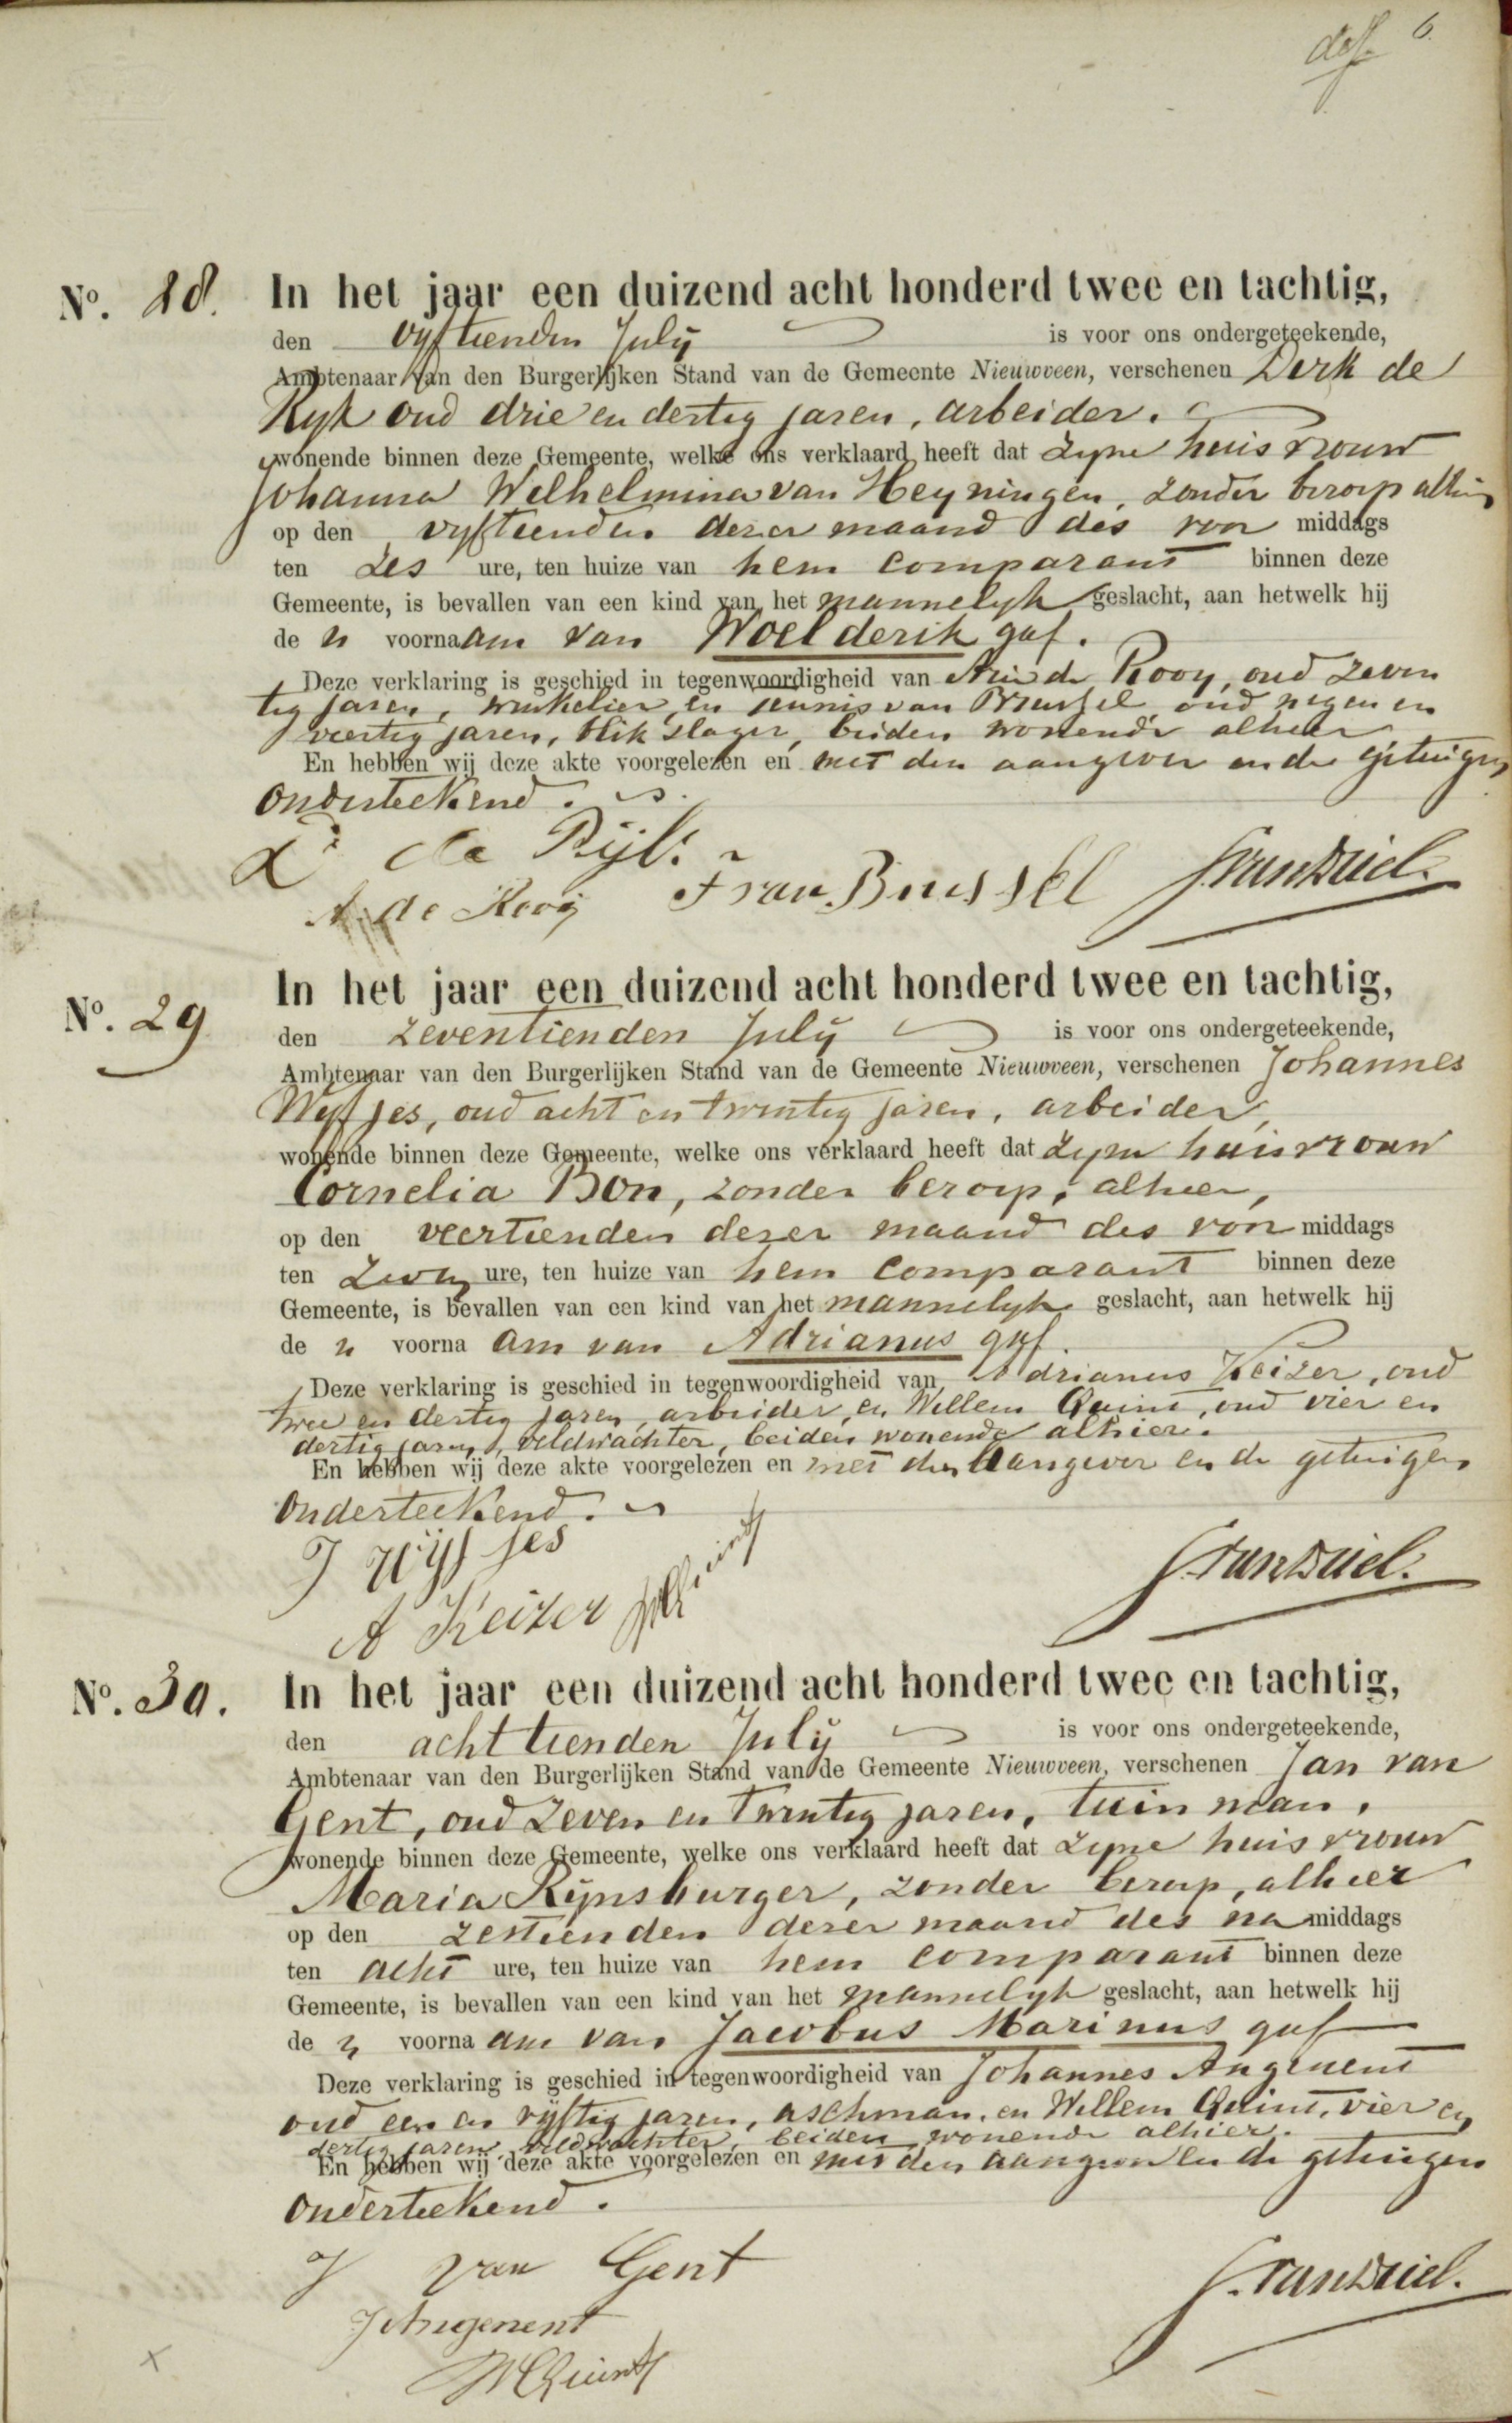 6.
No. 28. In het jaar een duizend acht honderd twee en tachtig,
den vyftienden July is voor ons ondergeteekende,
Ambtenaar van den Burgerlijken Stand van de Gemeente Nieuwveen, verschenen Derk de
Ryk oud drie en dertig jaren, arbeider.
wonende binnen deze Gemeente, welke ons verklaard heeft dat zyne huisvrouw
Johanna Wilhelmina van Heyningen, zonder beroep alhier
op den vyftienden dezer maand des voor middags
ten zes ure, ten huize van hem comparant binnen deze
Gemeente, is bevallen van een kind van het mannelyk geslacht, aan hetwelk hij
de n voornaam van Woelderik gaf.
Deze verklaring is geschied in tegenwoordigheid van Arie de Rooy, oud zeven
tig jaren, winkelier, en Teunis van Brussel oud negen en
veertig jaren, blikslager, beiden wonende alhier
En hebben wij deze akte voorgelezen en met den aangever en de getuigen
onderteekend.
D de Rijk.
A. de Rooij T van Brussel
No. 29 In het jaar een duizend acht honderd twee en tachtig,
den zeventienden July is voor ons ondergeteekende,
Ambtenaar van den Burgerlijken Stand van de Gemeente Nieuwveen, verschenen Johannes
Wyfjes, oud acht en twintig jaren, arbeider,
wonende binnen deze Gemeente, welke ons verklaard heeft dat zyne huisvrouw
Cornelia Bon, zonder beroep, alhier,
op den veertienden dezer maand des voor middags
ten zeven ure, ten huize van hem comparant binnen deze
Gemeente, is bevallen van een kind van het mannelyk geslacht, aan hetwelk hij
de n voorna am van Adrianus gaf.
Deze verklaring is geschied in tegenwoordigheid van Adrianus Keizer, oud
twee en dertig jaren, arbeider, en Willem Quint, oud vier en
dertig jaren, veldwachter, beiden wonende alhier.
En hebben wij deze akte voorgelezen en met den aangever en de getuigen
onderteekend.
J Wijfjes
A Keizer
No. 30. In het jaar een duizend acht honderd twee en tachtig,
den acht tienden July is voor ons ondergeteekende,
Ambtenaar van den Burgerlijken Stand van de Gemeente Nieuwveen, verschenen Jan van
Gent, oud zeven en twintig jaren, tuinman,
wonende binnen deze Gemeente, welke ons verklaard heeft dat zyne huisvrouw
Maria Rynsburger, zonder beroep, alhier
op den zestienden dezer maand des na middags
ten acht ure, ten huize van hem comparant binnen deze
Gemeente, is bevallen van een kind van het mannelyk geslacht, aan hetwelk hij
de n voorna am van Jacobus Marinus gaf
Deze verklaring is geschied in tegenwoordigheid van Johannes Angenent
oud een en vyftig jaren, aschman, en Willem Quint, vier en
dertig jaren, veldwachter, beiden wonende alhier.
En hebben wij deze akte voorgelezen en met den aangever en de getuigen
onderteekend.
J van Gent
J Angenent
W Quint